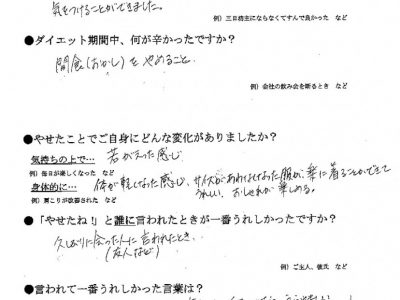 気をつけることができました。
例）三日坊主にならなくてすんで良かった など
●ダイエット期間中、何が辛かったですか？
間食(おかし)をやめること。
例）会社の飲み会を断るとき など
●やせたことでご自身にどんな変化がありましたか？
気持ちの上で… 若がえった感じ
例）毎日が楽しくなった など
身体的に… 体が軽くなった感じ、サイズがあわなくなった服が、楽に着ることができて
例）肩こりが改善された など うれしい、おしゃれが楽しめる。
●「やせたね！」と誰に言われたときが一番うれしかったですか？
久しぶりに会った人に言われたとき、
(友人など)
例）ご主人、彼氏 など
●言われて一番うれしかった言葉は？